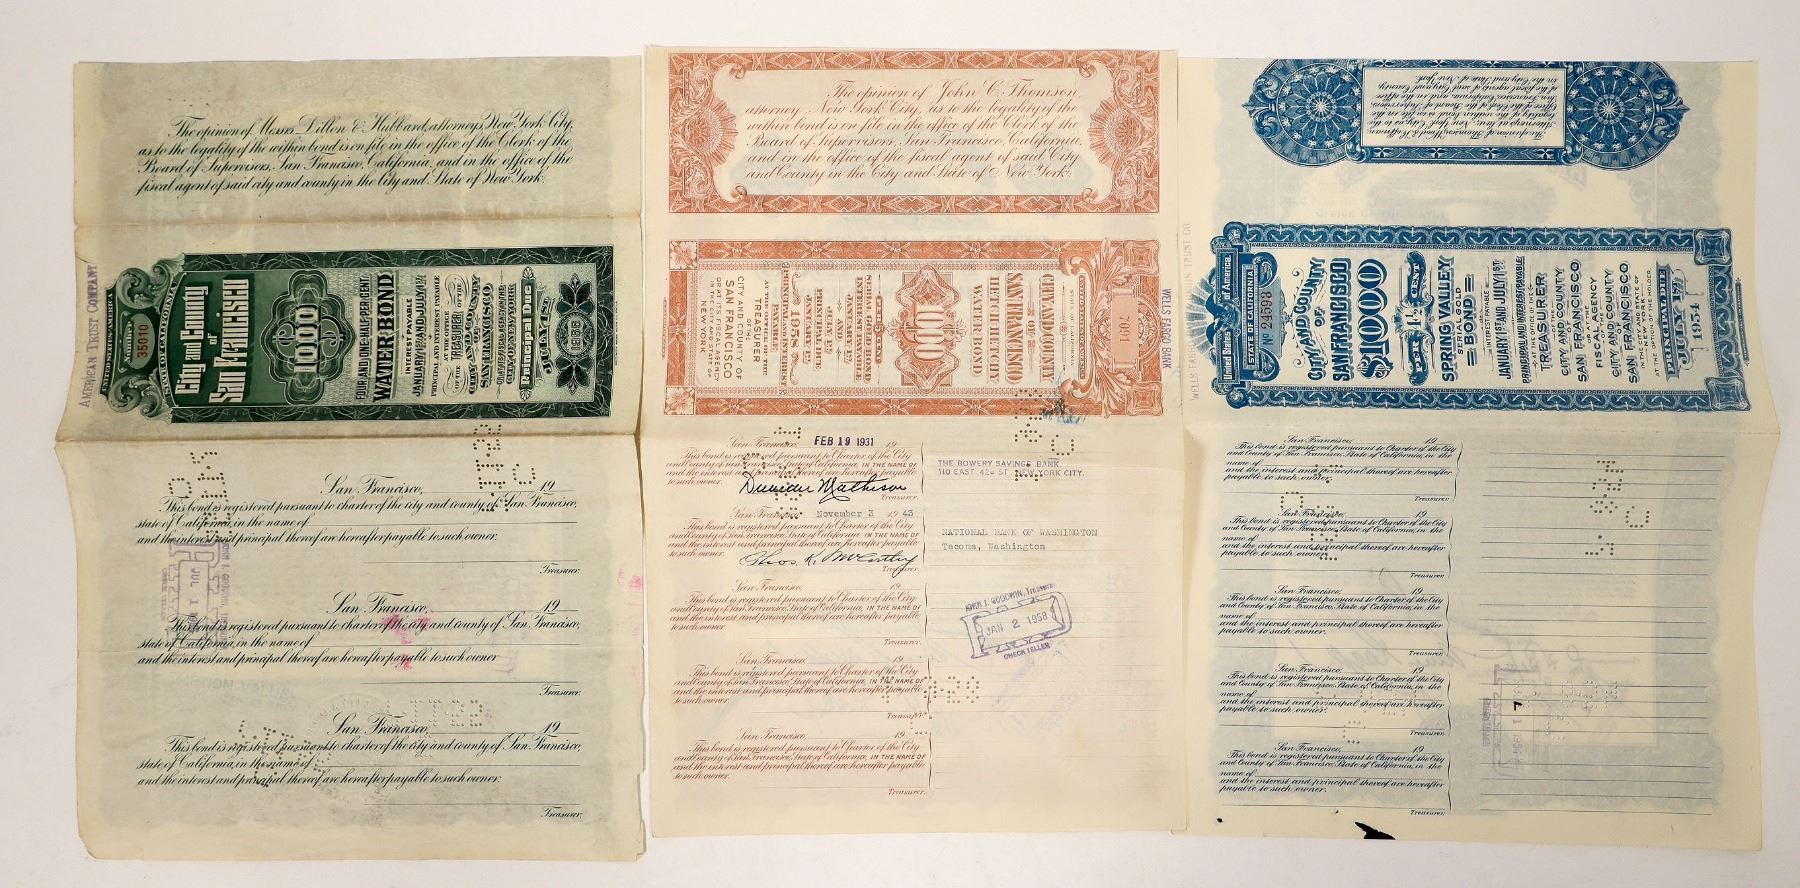 The opinion of Messrs. Dillon & Hubbard, attorneys, New York City,
as to the legality of the within bond is on file in the office of the Clerk of the
Board of Supervisors, San Francisco, California, and in the office of the
fiscal agent of said city and county in the City and State of New York.
AMERICAN TRUST COMPANY
UNITED STATES OF AMERICA
Number
35010
STATE OF CALIFORNIA
City and County
of
San Francisco
1000
FOUR AND ONE-HALF PER CENT.
WATER BOND
INTEREST PAYABLE
JANUARY 1ST AND JULY 1ST
PRINCIPAL AND INTEREST PAYABLE
AT THE OFFICE OF THE
TREASURER OF THE
CITY AND COUNTY
OF SAN FRANCISCO
OR CITY OF NEW YORK
Principal Due
JULY 1ST
San Francisco, 19
This bond is registered pursuant to charter of the city and county of San Francisco,
state of California, in the name of
and the interest and principal thereof are hereafter payable to such owner.
Treasurer.
San Francisco, 19
This bond is registered pursuant to charter of the city and county of San Francisco,
state of California, in the name of
and the interest and principal thereof are hereafter payable to such owner
Treasurer.
San Francisco, 19
This bond is registered pursuant to charter of the city and county of San Francisco,
state of California, in the name of
and the interest and principal thereof are hereafter payable to such owner.
Treasurer.
The opinion of John C. Thomson,
attorney New York City, as to the legality of the
within bond is on file in the office of the Clerk of the
Board of Supervisors, San Francisco, California,
and in the office of the fiscal agent of said City
and County in the City and State of New York.
WELLS FARGO BANK
7011
CITY AND COUNTY
OF
SAN FRANCISCO
HETCH HETCHY
WATER BOND
$1000
INTEREST PAYABLE
JANUARY 1ST
AND
JULY 1ST
PRINCIPAL DUE
JANUARY 1ST 1958
PRINCIPAL AND INTEREST
PAYABLE
AT THE OFFICE OF THE
TREASURER
OF THE
CITY AND COUNTY OF
SAN FRANCISCO
OR AT ITS FISCAL AGENCY
IN THE CITY AND STATE OF
NEW YORK.
San Francisco, FEB 19 1931 19
This bond is registered pursuant to Charter of the City
and County of San Francisco, State of California, IN THE NAME OF
and the interest and principal thereof are hereafter payable
to such owner.
THE BOWERY SAVINGS BANK
110 EAST 42D ST. NEW YORK CITY.
Duncan Matheson
Treasurer.
San Francisco November 3 1943
This bond is registered pursuant to Charter of the City
and County of San Francisco, State of California, IN THE NAME OF
and the interest and principal thereof are hereafter payable
to such owner.
NATIONAL BANK OF WASHINGTON
Tacoma, Washington
Thos. K. McCarthy
Treasurer.
San Francisco, 19
This bond is registered pursuant to Charter of the City
and County of San Francisco, State of California, IN THE NAME OF
and the interest and principal thereof are hereafter payable
to such owner.
Treasurer.
JOHN J. GOODWIN, Treasurer
JAN 2 1958
CHECK TELLER
San Francisco, 19
This bond is registered pursuant to Charter of the City
and County of San Francisco, State of California, IN THE NAME OF
and the interest and principal thereof are hereafter payable
to such owner.
Treasurer.
San Francisco, 19
This bond is registered pursuant to Charter of the City
and County of San Francisco, State of California, IN THE NAME OF
and the interest and principal thereof are hereafter payable
to such owner.
Treasurer.
The opinion of Thomson, Wood & Hoffman
Attorneys at law, New York City, as to the
legality of the within bond is on file in the
office of the Clerk of the Board of Supervisors,
San Francisco, California, and in the office
of the fiscal agent of said City and County
in the City and State of New York.
United States of America.
STATE OF CALIFORNIA
No 24598
CITY AND COUNTY
OF
SAN FRANCISCO
$1000
4½ PER CENT
SPRING VALLEY
SERIAL GOLD
BOND
INTEREST PAYABLE
JANUARY 1ST AND JULY 1ST
PRINCIPAL AND INTEREST PAYABLE
AT THE OFFICE OF THE
TREASURER
CITY AND COUNTY OF
SAN FRANCISCO
OR AT THE
FISCAL AGENCY
CITY AND COUNTY OF
SAN FRANCISCO
IN THE CITY AND STATE OF
NEW YORK
AT THE OPTION OF THE HOLDER.
PRINCIPAL DUE
JULY 1ST
1954
San Francisco, 19
This bond is registered pursuant to Charter of the City
and County of San Francisco, State of California, in the
name of
and the interest and principal thereof are hereafter
payable to such owner.
Treasurer
San Francisco, 19
This bond is registered pursuant to Charter of the City
and County of San Francisco, State of California, in the
name of
and the interest and principal thereof are hereafter
payable to such owner.
Treasurer
San Francisco, 19
This bond is registered pursuant to Charter of the City
and County of San Francisco, State of California, in the
name of
and the interest and principal thereof are hereafter
payable to such owner.
Treasurer
San Francisco, 19
This bond is registered pursuant to Charter of the City
and County of San Francisco, State of California, in the
name of
and the interest and principal thereof are hereafter
payable to such owner.
Treasurer
San Francisco, 19
This bond is registered pursuant to Charter of the City
and County of San Francisco, State of California, in the
name of
and the interest and principal thereof are hereafter
payable to such owner.
Treasurer